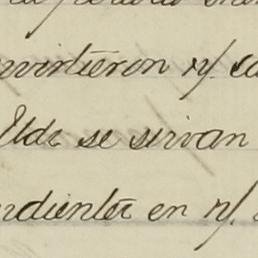 nvirtieron n/. ca
Uds se sirvan
rdientes en n/.